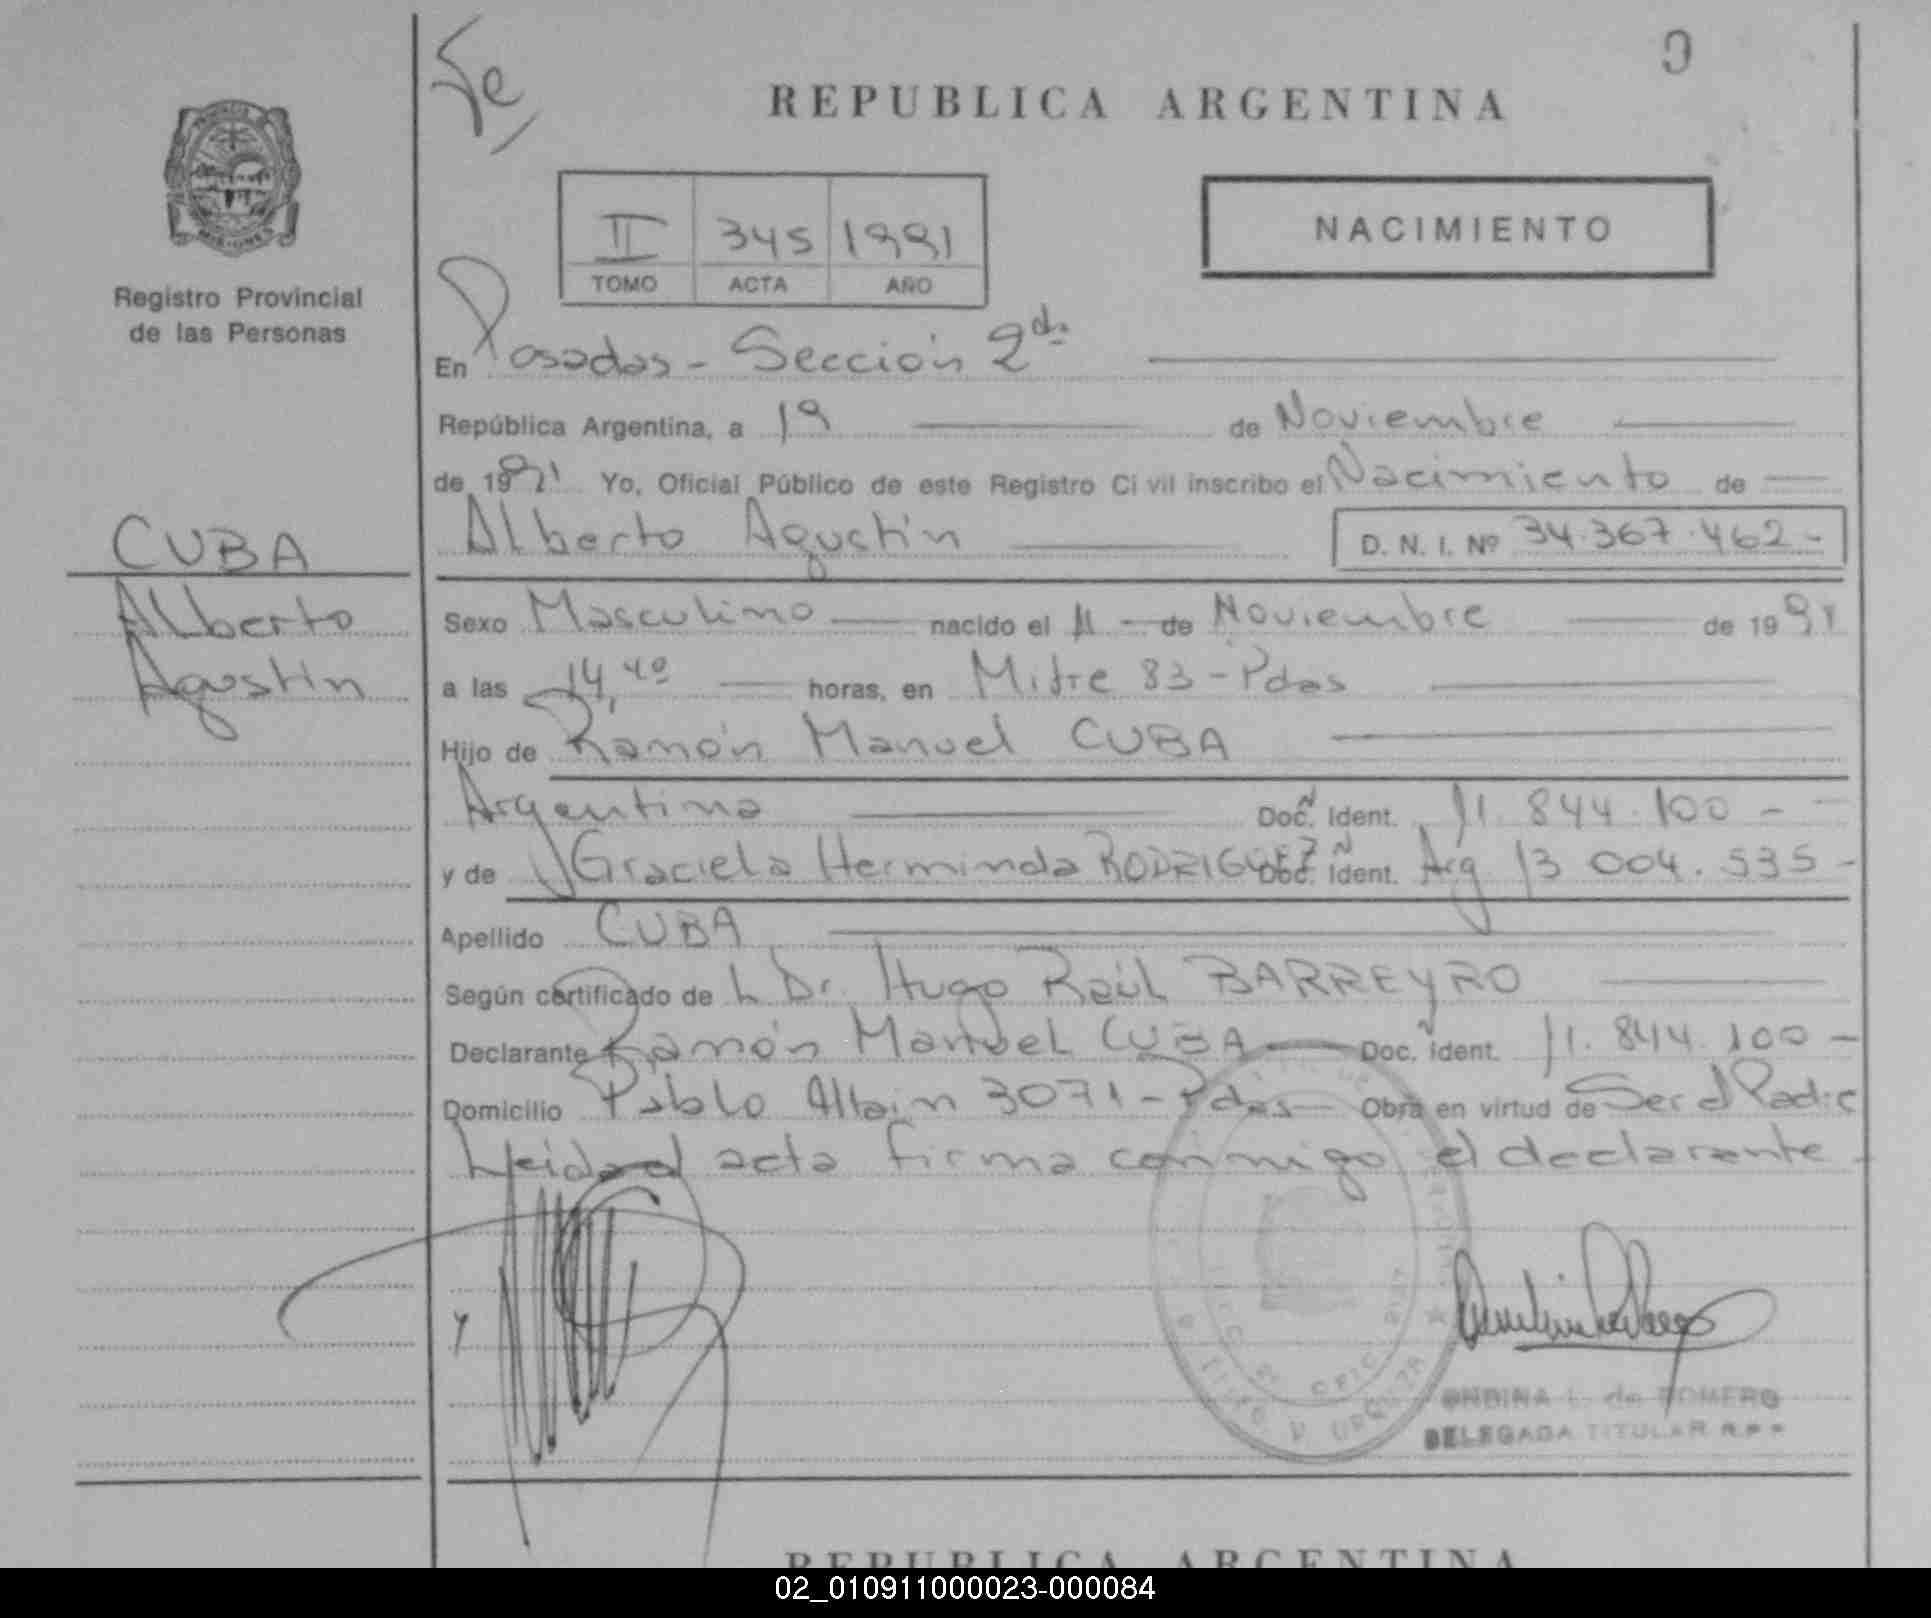 REPUBLICA ARGENTINA
MISIONES
Registro Provincial
de las Personas
II 345 1991
TOMO ACTA AÑO
NACIMIENTO
En Posadas - Sección 2da
República Argentina, a 19 de Noviembre
de 1991 Yo, Oficial Público de este Registro Civil inscribo el Nacimiento de
Alberto Agustín D. N. I. Nº 34.367.462-
CUBA
Alberto
Agustín
Sexo Masculino nacido el 11 de Noviembre de 1991
a las 14,40 horas, en Mitre 83 - Pdas
Hijo de Ramón Manuel CUBA
Argentina Doc. Ident. 11.844.100-
y de Graciela Herminda RODRIGUEZ Doc. Ident. Arg 13 004.535-
Apellido CUBA
Según certificado de L Dr. Hugo Raúl BARREYRO
Declarante Ramón Manuel CUBA Doc. Ident. 11.844.100-
Domicilio Pablo Allain 3071 - Pdas Obra en virtud de Ser el Padre
Leida el acta firma conmigo el declarante
ONDINA L. de ROMERO
DELEGADA TITULAR R.P.P
REPUBLICA ARGENTINA
02_010911000023-000084